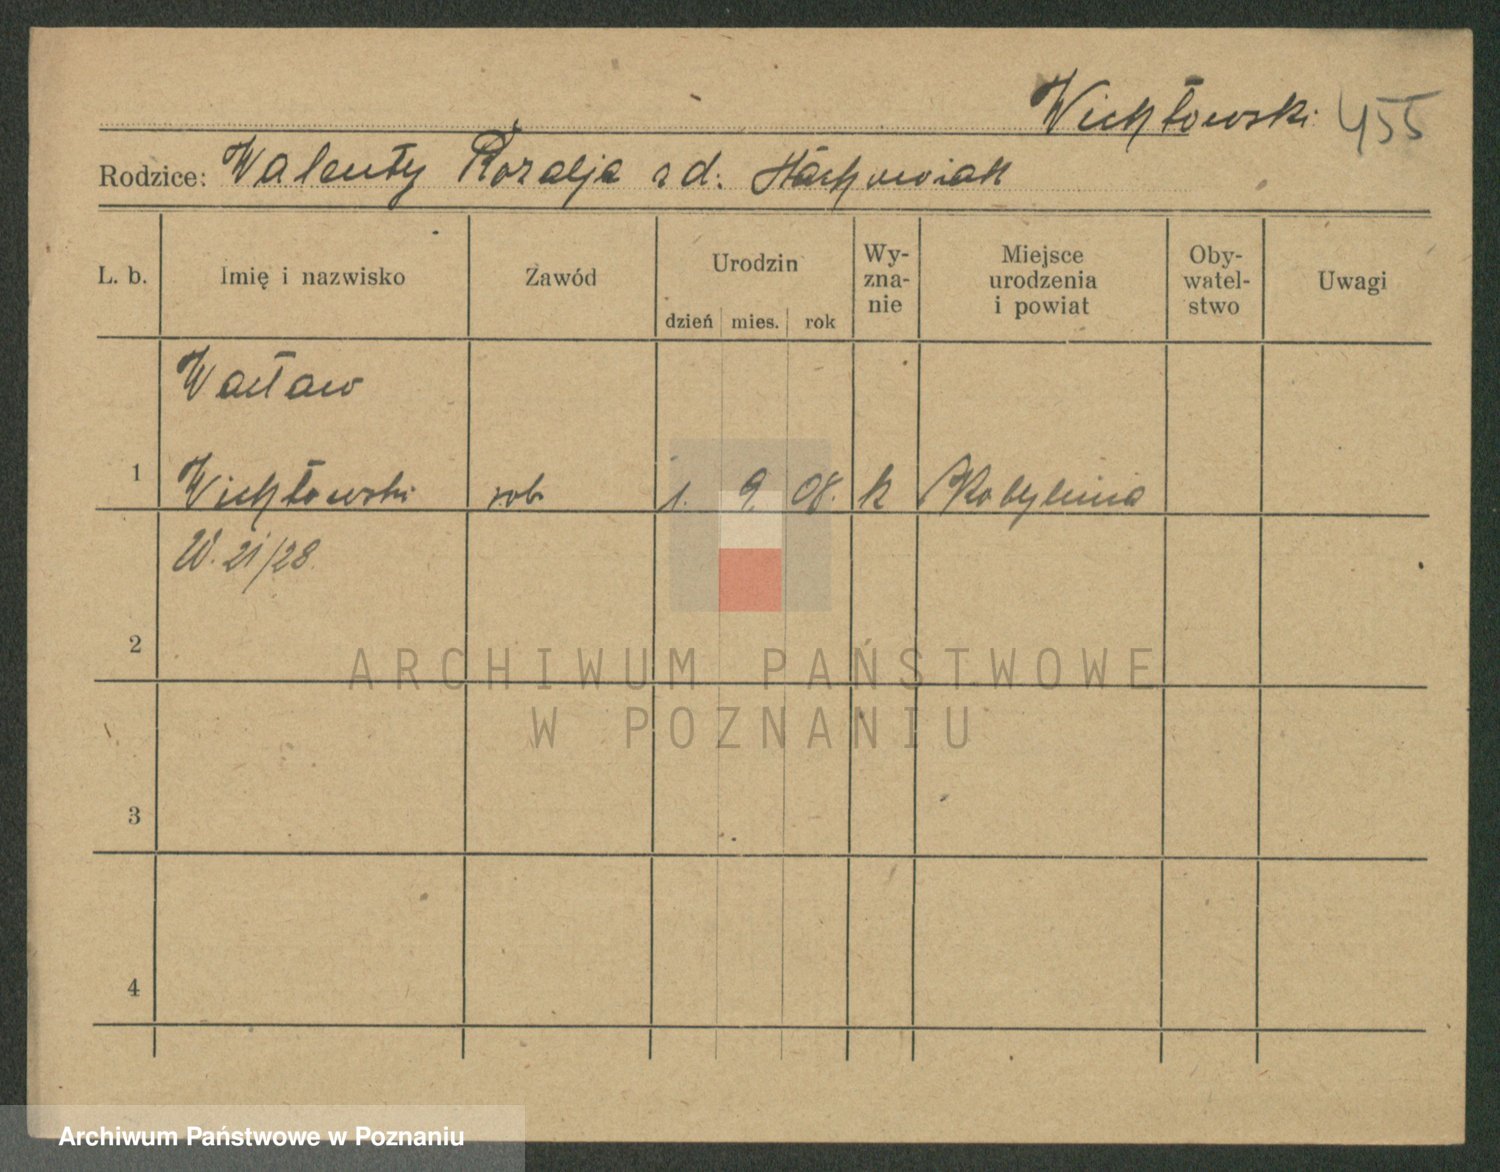 Wichłowski 455
Rodzice: Walenty Rozalja z d.
L. b. Imię i nazwisko Zawód Urodzin dzień mies. rok Wy-znanie Miejsce urodzenia i powiat Oby-watel-stwo Uwagi
Wacław
1 Wichłowski rob 1. 9. 08. k
W. 21/28.
2
ARCHIWUM PAŃSTWOWE
W POZNANIU
3
4
Archiwum Państwowe w Poznaniu